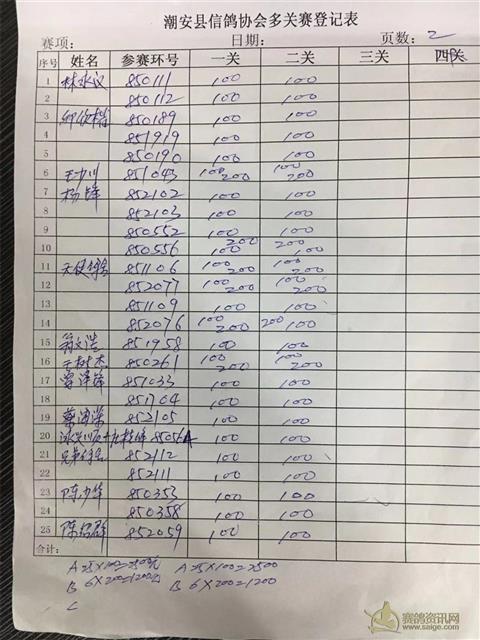 潮安县信鸽协会多关赛登记表
赛项： 日期： 页数：2
序号 姓名 参赛环号 一关 二关 三关 四关
1 林永义 850111 100 100
2 850112 100 100
3 850189 100 100
4 851919 100 100
5 850190 100 100
6 851043 100 200 100 200
7 杨锋 852102 100 100
8 852103 100 100
9 850552 100 100
10 850556 200 100 200 100
11 851106 100 200 100 200
12 852077 100 200 100 200
13 851109 100 100
14 852076 100 200 200 100
15 851958 100 100
16 王树杰 850261 100 200 100 200
17 曾泽锋 851033 100 100
18 851704 100 100
19 852105 100 100
20 100 100
21 852112 100 100
22 852111 100 100
23 陈少华 850353 100 100
24 850358 100 100
25 852059 100 100
合计：
A 25×100=2500元 A 25×100=2500
B 6×200=1200元 B 6×200=1200
C
赛鸽资讯网
www.saige.com